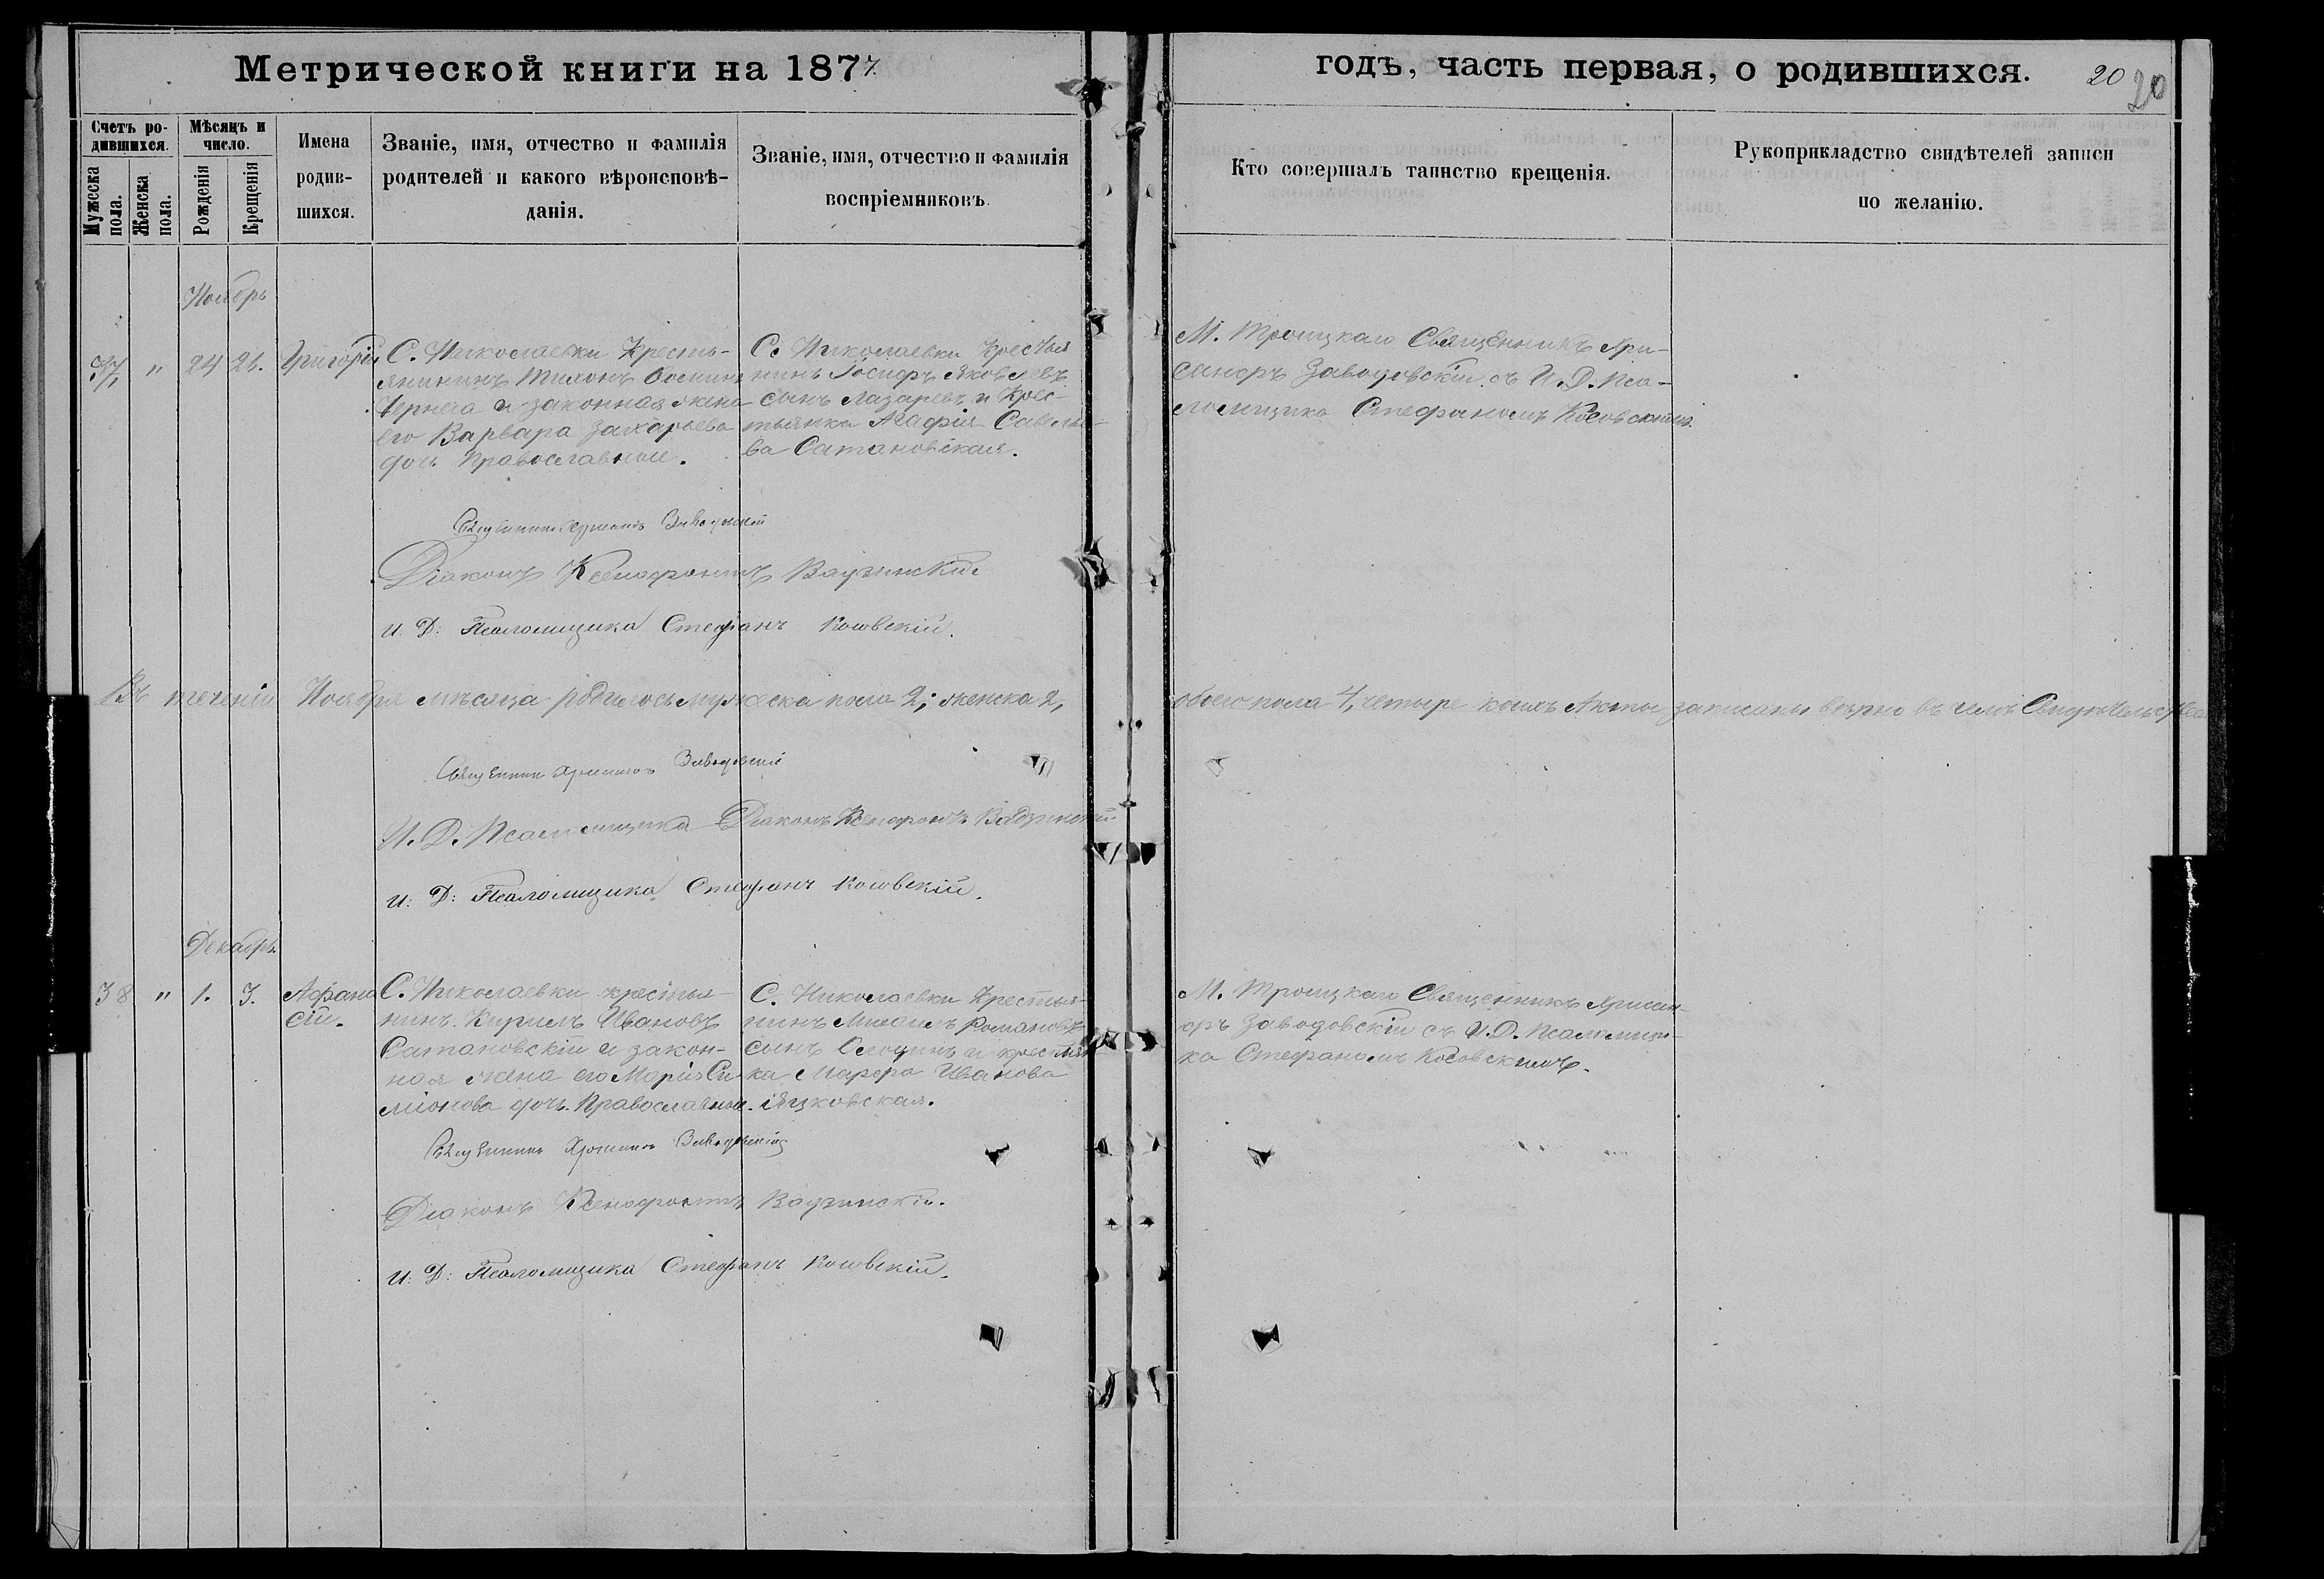 Метрической книги на 1877.
годъ, часть первая, о родившихся.
20
20
Счетъ ро-
дившихся.
Мужеска
пола.
Женска
пола.
Мѣсяцъ и
число.
Рожденія
Крещенія
Имена
родив-
шихся.
Званіе, имя, отчество и фамилія
родителей и какого вѣроисповѣ-
данія.
Званіе, имя, отчество и фамилія
воспріемниковъ.
Кто совершалъ таинство крещенія.
Рукоприкладство свидѣтелей записи
по желанію.
Ноябрь
37, " 24 26. Григорій
С. Николаевки Кресть-
янинъ Тихонъ
Чернега и законная жена
его Варвара Захарьева
дочь Православные.
С. Николаевки Крестья
нинъ Іосифъ Яковлевъ
сынъ Лазаревъ и Крес-
тьянка Агафія Савелье-
ва Сатановская.
М. Троицкаго Священникъ Хри-
санфъ Заводовскій съ И. Д. Пса-
ломщика Стефаномъ Косовскимъ.
Священникъ Хрисанфъ Заводовскій
Діаконъ Ксенофонтъ Вадзинскій
И. Д: Псаломщика Стефанъ Косовскій.
Въ теченіи Ноября мѣсяца родилось мужеска пола 2, женска 2, обоего пола 4, четыре коихъ Акты записаны вѣрно въ чемъ Свидѣтельствуемъ
Священникъ Хрисанфъ Заводовскій
И. Д. Псаломщика Діаконъ Ксенофонтъ Вадзинскій
И: Д: Псаломщика Стефанъ Косовскій.
Декабрь
38 " 1. 3. Афана
сій.
С. Николаевки крестья-
нинъ Кирилъ Ивановъ
Сатановскій и закон-
ная жена его Марія Си-
міонова дочь Православные.
С. Николаевки Крестья-
нинъ Михаилъ Романовъ
сынъ и крестьян
ка Марфа Иванова
Яцковская.
М. Троицкаго Священникъ Хрисан-
фъ Заводовскій съ И. Д. Псаломщи-
ка Стефаномъ Косовскимъ.
Священникъ Хрисанфъ Заводовскій
Діаконъ Ксенофонтъ Вадзинскій.
И: Д: Псаломщика Стефанъ Косовскій.